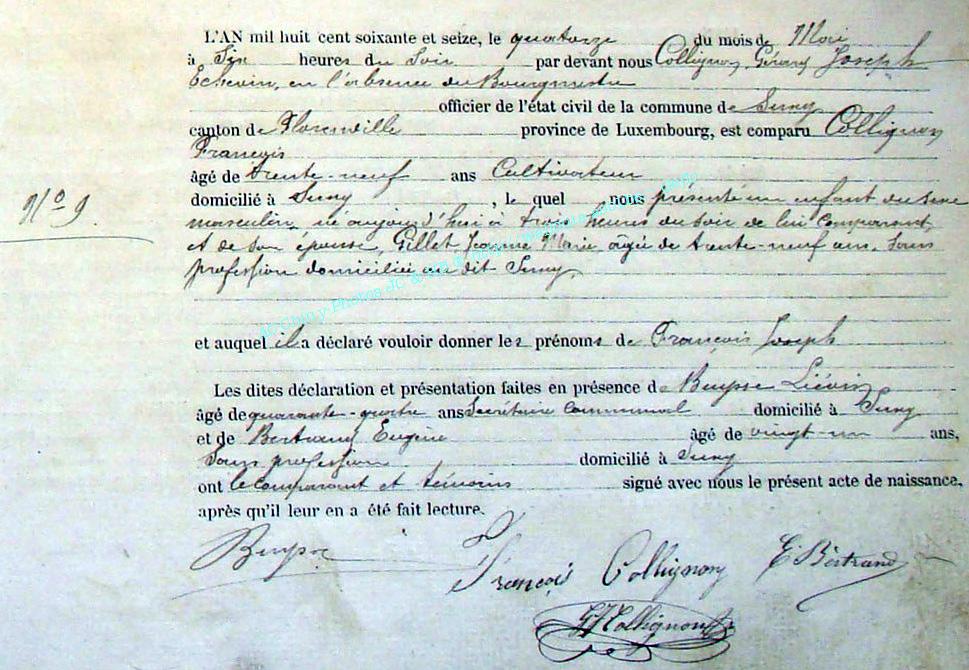 L'AN mil huit cent soixante et seize, le quatorze du mois de Mai
à Six heures du Soir par devant nous Collignon, Gérard Joseph
Echevin, en l'absence du Bourgmestre
officier de l'état civil de la commune de Suny
canton de Florenville province de Luxembourg, est comparu Collignon
François
âgé de trente-neuf ans Cultivateur
domicilié à Suny, le quel nous présente un enfant du sexe
N° 9
masculin, né aujourd'hui à trois heures du soir de lui Comparant
et de son épouse, Gillet, Jeanne Marie, âgée de trente-neuf ans, Sans
profession domiciliée au dit Suny
et auquel il a déclaré vouloir donner les prénoms de François Joseph
Les dites déclaration et présentation faites en présence de Buysse Liévin
âgé de quarante-quatre ans Secrétaire Communal domicilié à Suny
et de Bertrand Eugène âgé de vingt-un ans,
Sans profession domicilié à Suny
ont le comparant et témoins signé avec nous le présent acte de naissance,
après qu'il leur en a été fait lecture.
Buysse
François Collignon E Bertrand
GJCollignon